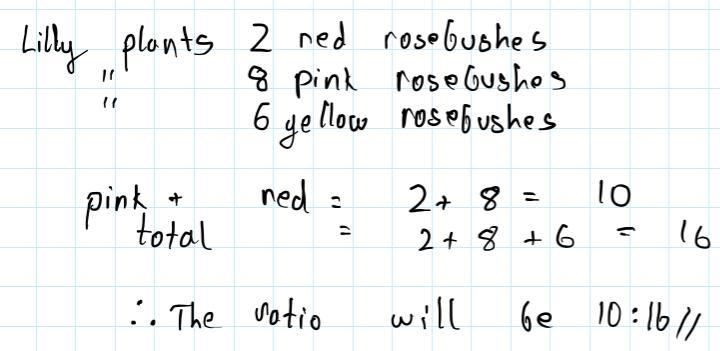 Lilly plants 2 red rosebushes
" 8 pink rosebushes
" 6 yellow rosebushes
pink + red = 2 + 8 = 10
total = 2 + 8 + 6 = 16
∴ The ratio will be 10:16//